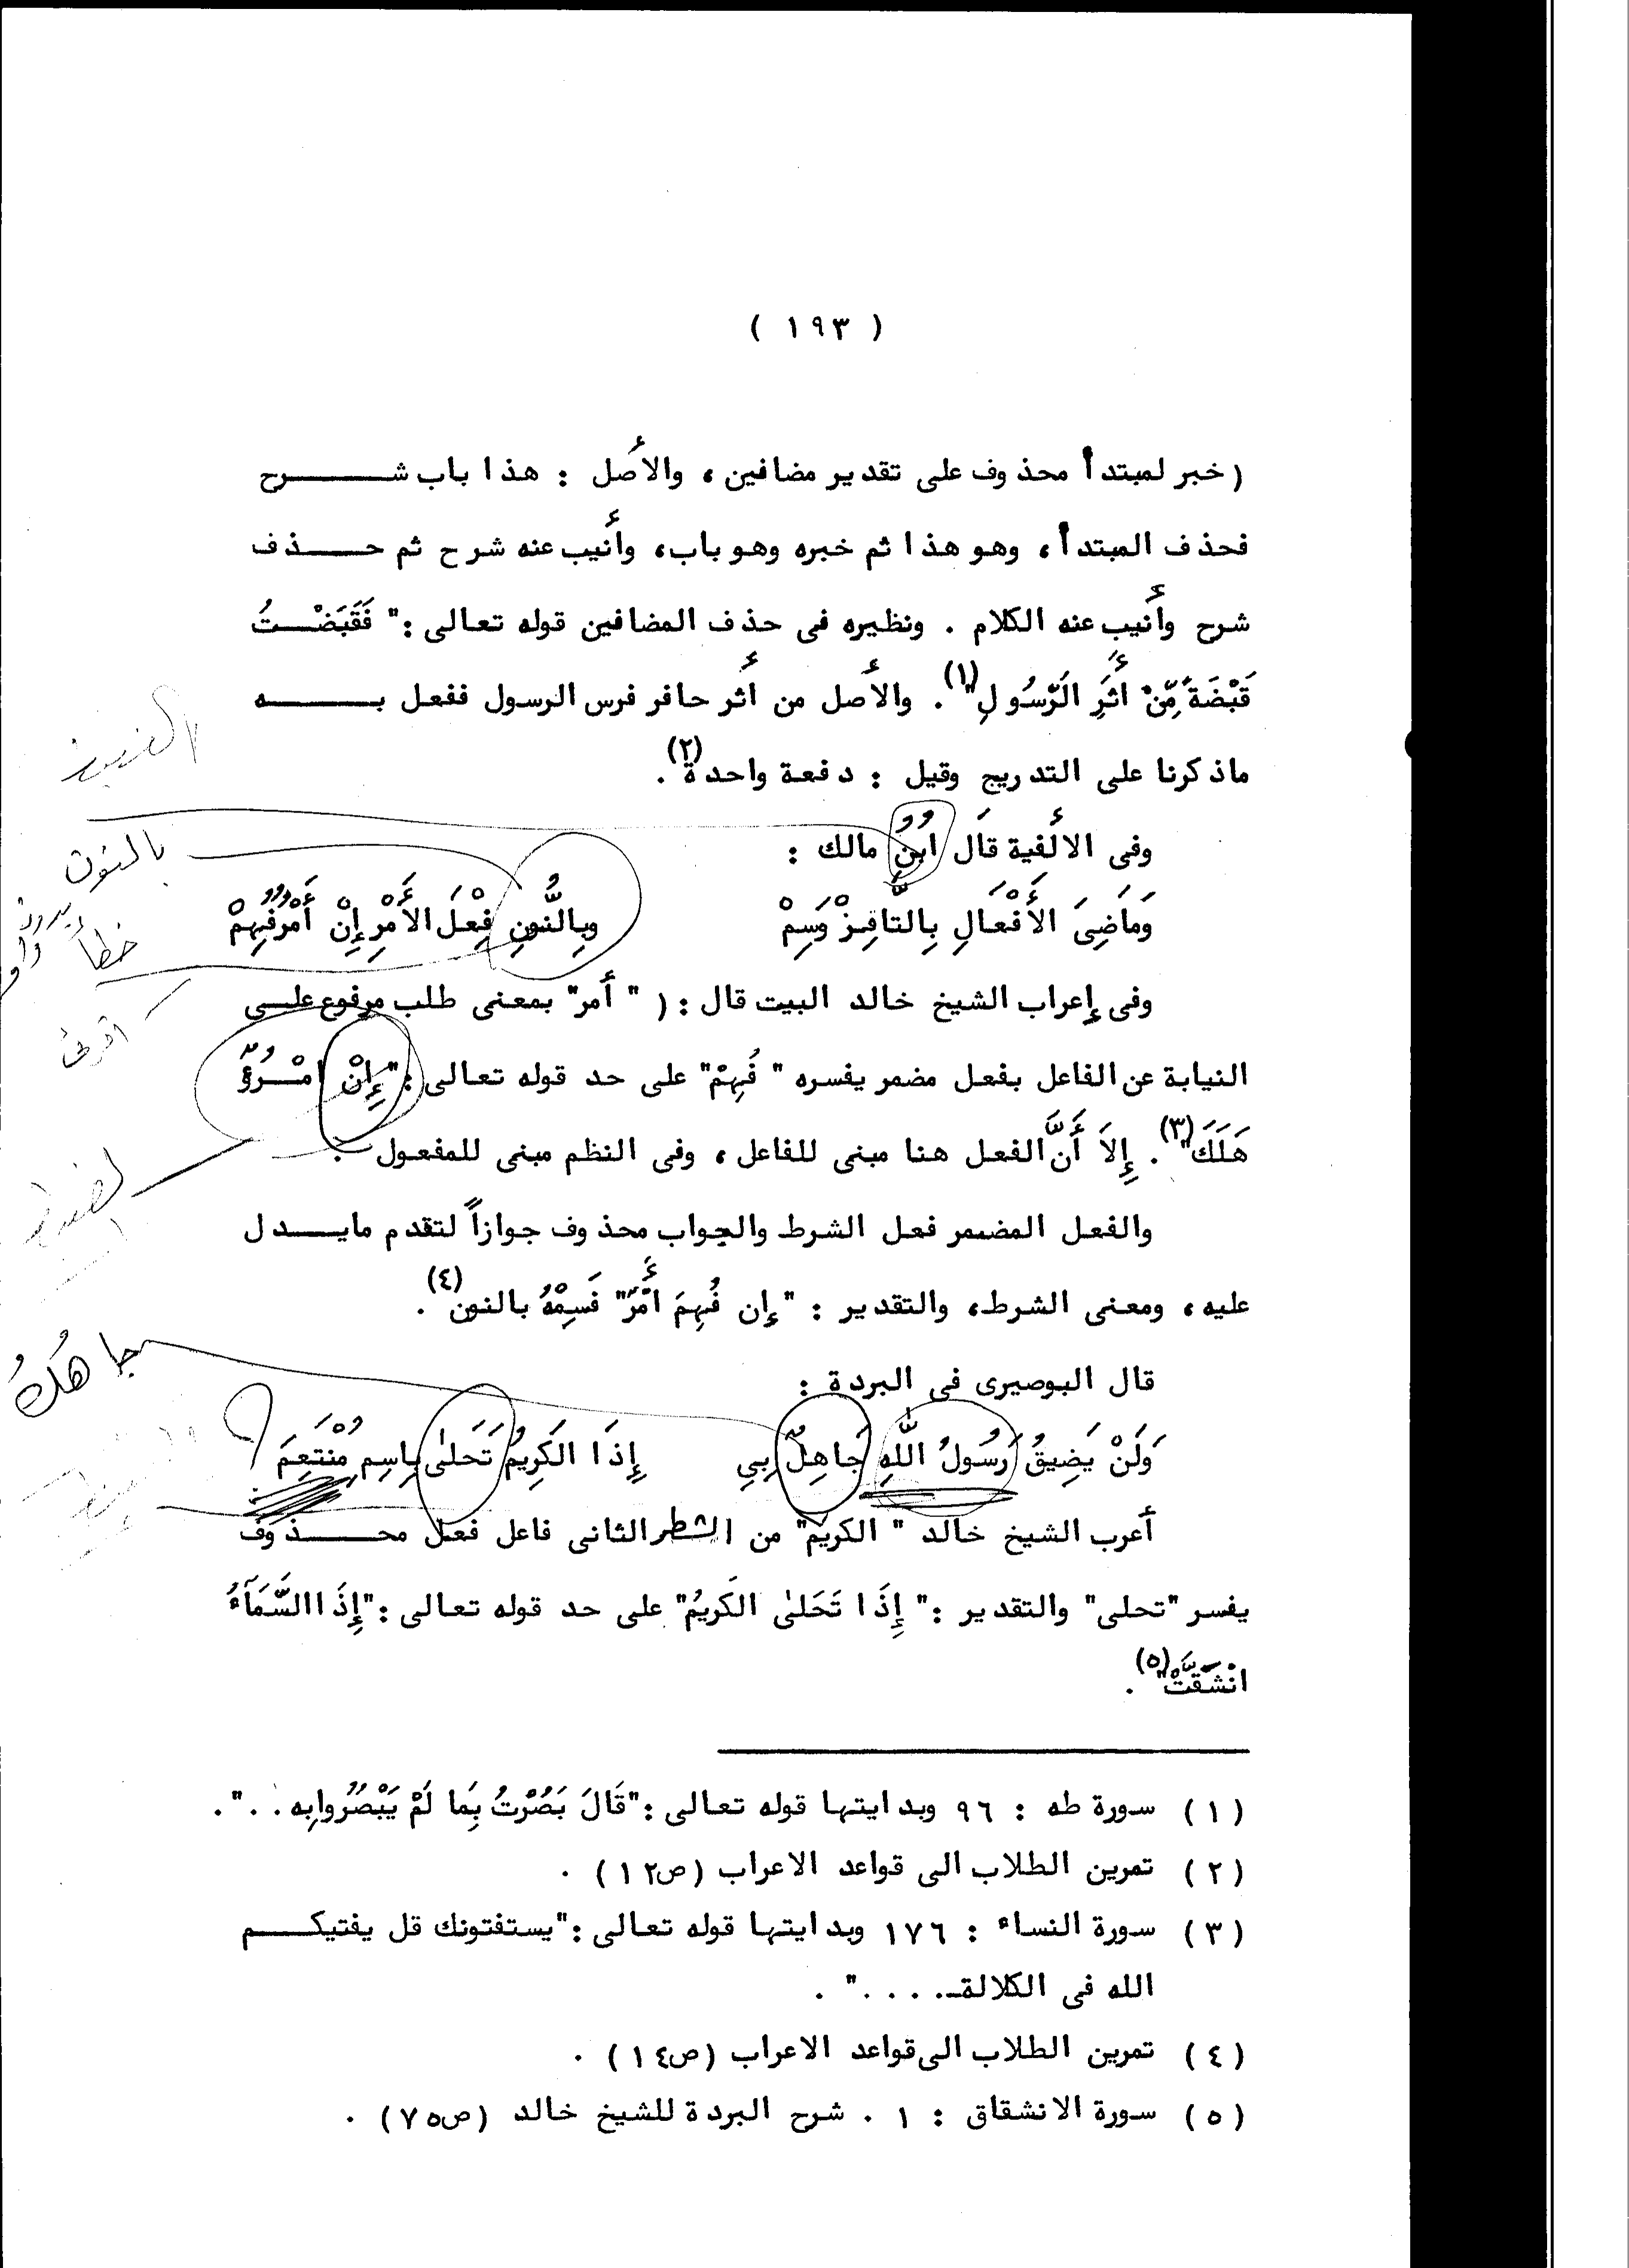 ( ١٩٣ )
( خبر لمبتدأ محذوف على تقدير مضافين، والأصل : هذا باب شرح
فحذف المبتدأ، وهو هذا ثم خبره وهو باب، وأنيب عنه شرح ثم حذف
شرح وأنيب عنه الكلام . ونظيره فى حذف المضافين قوله تعالى :" فَقَبَضْتُ
قَبْضَةً مِّنْ أَثَرِ الَرَّسُولِ"(١) . والأصل من أثر حافر فرس الرسول ففعل به
ماذكرنا على التدريج وقيل : دفعة واحدة(٢).
وفى الالفية قَال ابنُ مالك :
وَمَاضِىَ الأَفْعَالِ بِالتَّا مِزْ وَسِمْ وبِالنُّونِ فِعْلَ الأَمْرِ إِنْ أَمْرٌ فُهِمْ
وفى إعراب الشيخ خالد البيت قال : ( " أمر" بمعنى طلب مرفوع على
النيابة عن الفاعل بفعل مضمر يفسره " فُهِمْ" على حد قوله تعالى :"إِنْ امْرُؤٌ
هَلَكَ"(٣) . إِلاَ أَنَّ الفعل هنا مبنى للفاعل، وفى النظم مبنى للمفعول .
والفعل المضمر فعل الشرط والجواب محذوف جوازاً لتقدم مايدل
عليه، ومعنى الشرط، والتقدير : "إن فُهِمَ أَمْرٌ" فَسِمْهُ بالنون(٤).
قال البوصيرى فى البردة :
وَلَنْ يَضِيقُ رَسُولُ اللَّهِ جَاهِلٌ بِي إِذَا الَكَرِيمُ تَحَلىٰ بِاسِمِ مِنْتَعِمَ
أعرب الشيخ خالد " الكريم" من الشطر الثانى فاعل فعل محذوف
يفسر "تحلى" والتقدير :" إِذَا تَحَلىٰ الَكَرِيمُ" على حد قوله تعالى :"إِذَا السَّمَآءُ
انْشَقَّتْ"(٥) .
( ١ ) سورة طه : ٩٦ وبدايتها قوله تعالى :"قَالَ بَصُرْتُ بِمَا لَمْ يَبْصُرُوابِه . .".
( ٢ ) تمرين الطلاب الى قواعد الاعراب (ص١٢) .
( ٣ ) سورة النساء : ١٧٦ وبدايتها قوله تعالى :"يستفتونك قل يفتيكم
الله فى الكلالة. . . ." .
( ٤ ) تمرين الطلاب الى قواعد الاعراب (ص١٤) .
( ٥ ) سورة الانشقاق : ١ . شرح البردة للشيخ خالد (ص٧٥) .
بالنون
خطأ
جاهُكُ